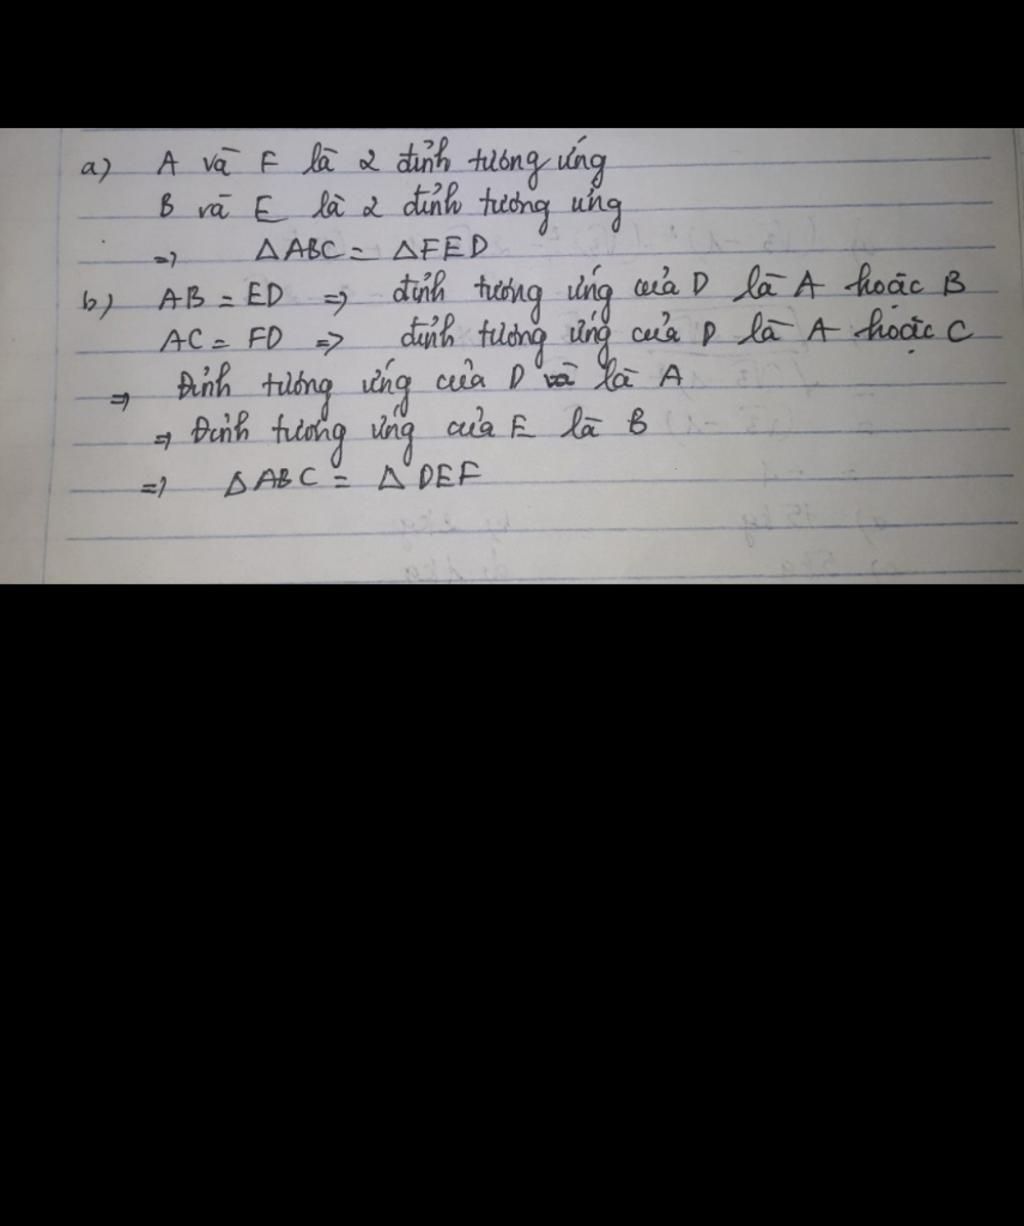 a) A và F là 2 đỉnh tương ứng
B và E là 2 đỉnh tương ứng
=> ΔABC = ΔFED
b) AB = ED => đỉnh tương ứng của D là A hoặc B
AC = FD => đỉnh tương ứng của D là A hoặc C
=> Đỉnh tương ứng của D là A
=> Đỉnh tương ứng của E là B
=> ΔABC = ΔDEF